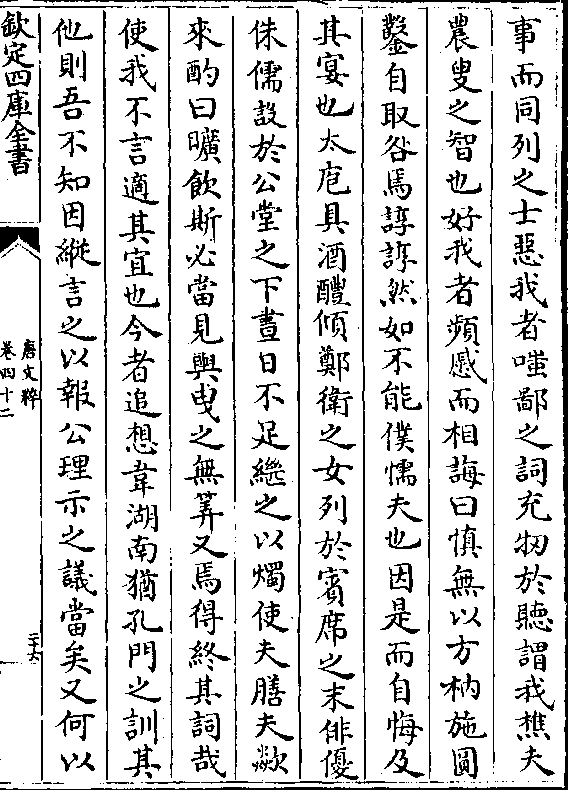 事而同列之士惡我者嗤鄙之詞充牣於聽謂我樵夫
農叟之智也好我者頻慼而相誨曰慎無以方枘施圓
鑿自取咎焉諄諄然如不能僕懦夫也因是而自悔及
其宴也太庖具酒醴傾鄭衛之女列於賓席之末俳優
侏儒設於公堂之下晝日不足繼之以燭使夫膳夫歘
來酌曰曠飲斯必當見輿曳之無筭又焉得終其詞哉
使我不言適其宜也今者追想韋湖南猶孔門之訓其
他則吾不知因縱言之以報公理示之議當矣又何以
欽定四庫全書
唐文粹
卷四十二
二十六